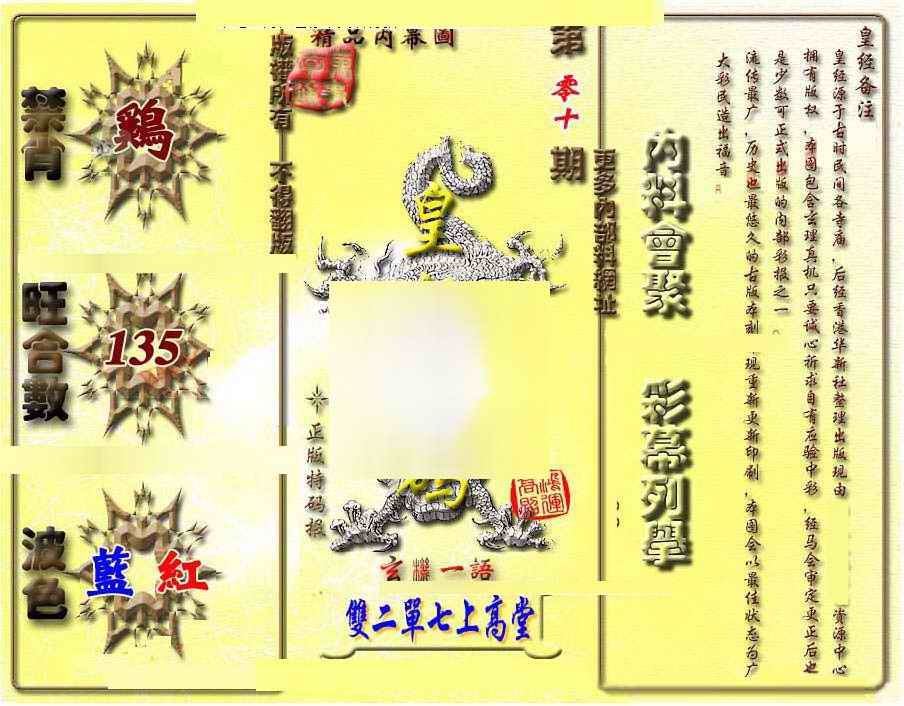 皇经备注
皇经源于古时民间各寺庙，后经香港华新社整理出版现由
资源中心
拥有版权，本图包含玄理真机只要诚心祈求自有应验中彩，经马会审定更正后也
是少数可正式出版的内部彩报之一
流传最广，历史也最悠久的古版本刻
现重新更新印刷，本图会以最佳状态为广
大彩民造出福音
内料會聚
彩幕列舉
更多內部料網址
第零十期
精品内幕圖
版權所有
不得翻版
皇
正版特码报
鴻運
玄機一語
雙二單七上高堂
禁肖
鷄
旺合數
135
波色
藍
紅